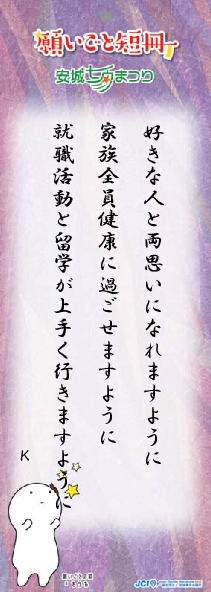 願いごと短冊
安城七夕まつり
好きな人と両思いになれますように
家族全員健康に過ごせますように
就職活動と留学が上手く行きますように
K
願いごと短冊
JCI